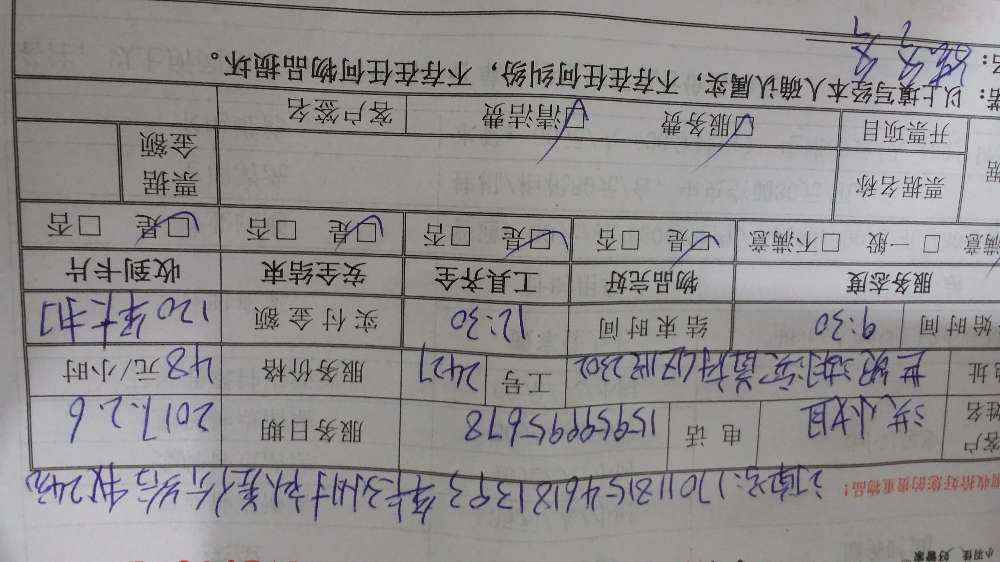 小羽佳 好管家
收拾好您的贵重物品!
订单号:1701181546181393 单3小时 补差价给 收24元
客户姓名 洪小姐 电话 15959995678 服务日期 2017.2.6
地址 世纪湖滨 2302 工号 2427 服务价格 48元/小时
始时间 9:30 结束时间 12:30 实付金额 120
服务态度 物品完好 工具齐全 安全结束 收到卡片
满意 □ 一般 □ 不满意 □是 □ 否 □是 □ 否 □是 □ 否 □是 □ 否
据 票据名称 票据金额
开票项目 □服务费 □清洁费 客户签名
诺: 以上填写经本人确认属实,不存在任何纠纷,不存在任何物品损坏。
名: